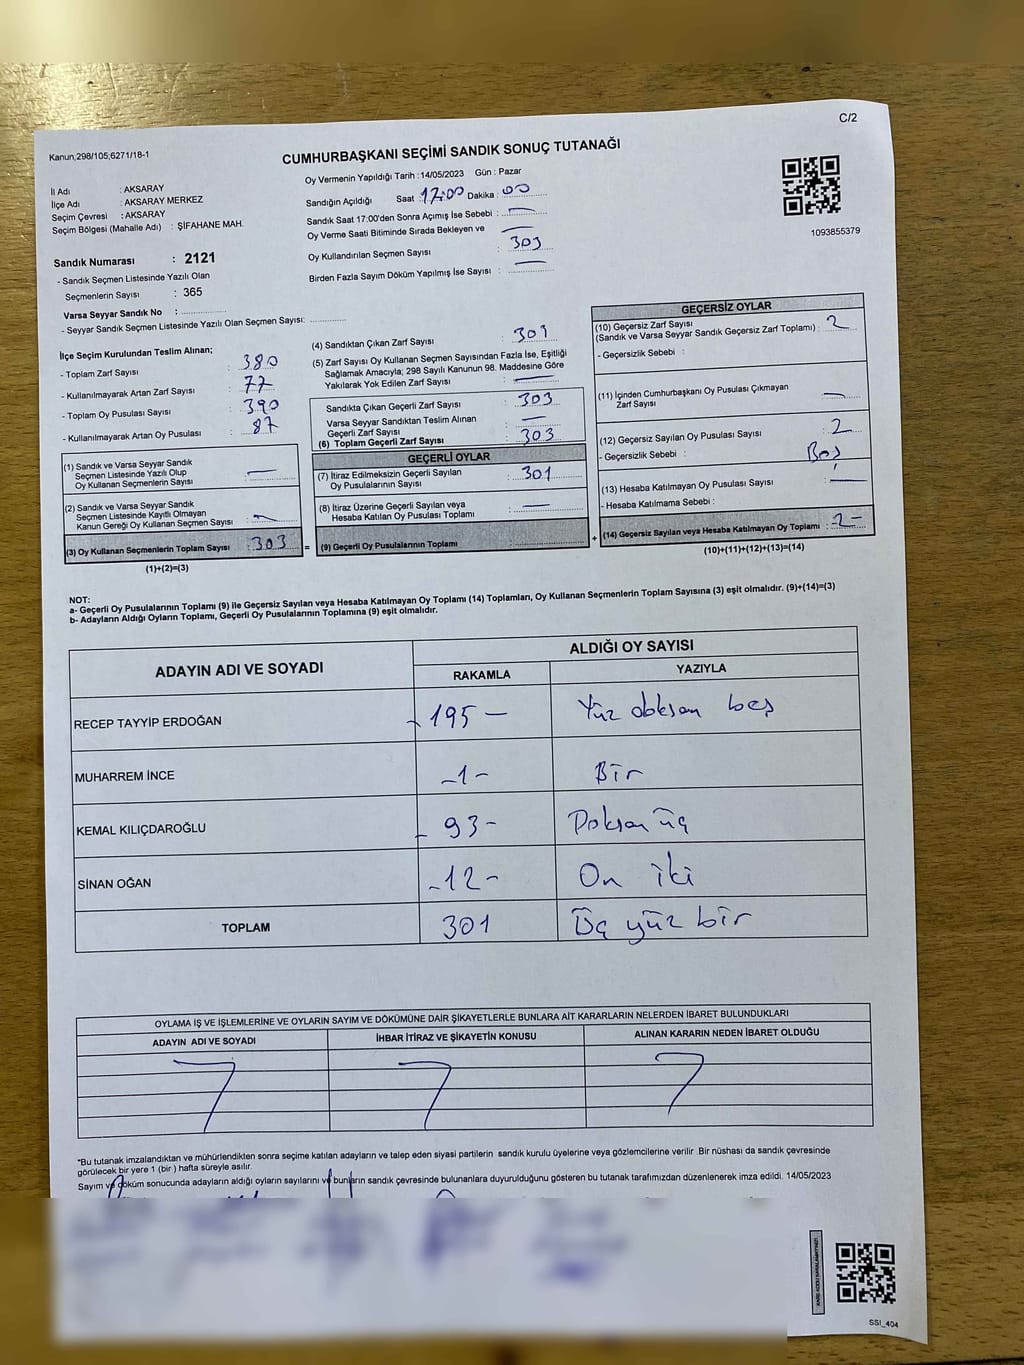 C/2
Kanun;298/105;6271/18-1
CUMHURBAŞKANI SEÇİMİ SANDIK SONUÇ TUTANAĞI
İl Adı : AKSARAY
İlçe Adı : AKSARAY MERKEZ
Seçim Çevresi : AKSARAY
Seçim Bölgesi (Mahalle Adı) : ŞİFAHANE MAH.
Sandık Numarası : 2121
- Sandık Seçmen Listesinde Yazılı Olan
Seçmenlerin Sayısı : 365
Varsa Seyyar Sandık No :
- Seyyar Sandık Seçmen Listesinde Yazılı Olan Seçmen Sayısı:
Oy Vermenin Yapıldığı Tarih : 14/05/2023 Gün : Pazar
Sandığın Açıldığı Saat : 17:00 Dakika : 00
Sandık Saat 17:00'den Sonra Açımış İse Sebebi : —
Oy Verme Saati Bitiminde Sırada Bekleyen ve —
Oy Kullandırılan Seçmen Sayısı : 303
Birden Fazla Sayım Döküm Yapılmış İse Sayısı : —
1093855379
İlçe Seçim Kurulundan Teslim Alınan;
- Toplam Zarf Sayısı : 380
- Kullanılmayarak Artan Zarf Sayısı : 77
- Toplam Oy Pusulası Sayısı : 390
- Kullanılmayarak Artan Oy Pusulası : 87
(1) Sandık ve Varsa Seyyar Sandık
Seçmen Listesinde Yazılı Olup
Oy Kullanan Seçmenlerin Sayısı : —
(2) Sandık ve Varsa Seyyar Sandık
Seçmen Listesinde Kayıtlı Olmayan
Kanun Gereği Oy Kullanan Seçmen Sayısı : —
(3) Oy Kullanan Seçmenlerin Toplam Sayısı : 303
(1)+(2)=(3)
(4) Sandıktan Çıkan Zarf Sayısı : 301
(5) Zarf Sayısı Oy Kullanan Seçmen Sayısından Fazla İse, Eşitliği
Sağlamak Amacıyla; 298 Sayılı Kanunun 98. Maddesine Göre
Yakılarak Yok Edilen Zarf Sayısı : —
Sandıkta Çıkan Geçerli Zarf Sayısı : 303
Varsa Seyyar Sandıktan Teslim Alınan
Geçerli Zarf Sayısı : —
(6) Toplam Geçerli Zarf Sayısı : 303
GEÇERLİ OYLAR
(7) İtiraz Edilmeksizin Geçerli Sayılan
Oy Pusulalarının Sayısı : 301
(8) İtiraz Üzerine Geçerli Sayılan veya
Hesaba Katılan Oy Pusulası Toplamı : —
= (9) Geçerli Oy Pusulalarının Toplamı :
GEÇERSİZ OYLAR
(10) Geçersiz Zarf Sayısı
(Sandık ve Varsa Seyyar Sandık Geçersiz Zarf Toplamı) : 2
- Geçersizlik Sebebi :
(11) İçinden Cumhurbaşkanı Oy Pusulası Çıkmayan
Zarf Sayısı : —
(12) Geçersiz Sayılan Oy Pusulası Sayısı : 2
- Geçersizlik Sebebi : Boş
(13) Hesaba Katılmayan Oy Pusulası Sayısı : —
- Hesaba Katılmama Sebebi :
+ (14) Geçersiz Sayılan veya Hesaba Katılmayan Oy Toplamı : -2-
(10)+(11)+(12)+(13)=(14)
NOT:
a- Geçerli Oy Pusulalarının Toplamı (9) ile Geçersiz Sayılan veya Hesaba Katılmayan Oy Toplamı (14) Toplamları, Oy Kullanan Seçmenlerin Toplam Sayısına (3) eşit olmalıdır. (9)+(14)=(3)
b- Adayların Aldığı Oyların Toplamı, Geçerli Oy Pusulalarının Toplamına (9) eşit olmalıdır.
ADAYIN ADI VE SOYADI ALDIĞI OY SAYISI
RAKAMLA YAZIYLA
RECEP TAYYİP ERDOĞAN - 195 — Yüz doksan beş
MUHARREM İNCE -1- Bir
KEMAL KILIÇDAROĞLU - 93 - Doksan üç
SİNAN OĞAN -12- On iki
TOPLAM 301 Üç yüz bir
OYLAMA İŞ VE İŞLEMLERİNE VE OYLARIN SAYIM VE DÖKÜMÜNE DAİR ŞİKAYETLERLE BUNLARA AİT KARARLARIN NELERDEN İBARET BULUNDUKLARI
ADAYIN ADI VE SOYADI İHBAR İTİRAZ VE ŞİKAYETİN KONUSU ALINAN KARARIN NEDEN İBARET OLDUĞU
*Bu tutanak imzalandıktan ve mühürlendikten sonra seçime katılan adayların ve talep eden siyasi partilerin sandık kurulu üyelerine veya gözlemcilerine verilir. Bir nüshası da sandık çevresinde
görülecek bir yere 1 (bir ) hafta süreyle asılır.
Sayım ve döküm sonucunda adayların aldığı oyların sayılarını ve bunların sandık çevresinde bulunanlara duyurulduğunu gösteren bu tutanak tarafımızdan düzenlenerek imza edildi. 14/05/2023
SSI_404